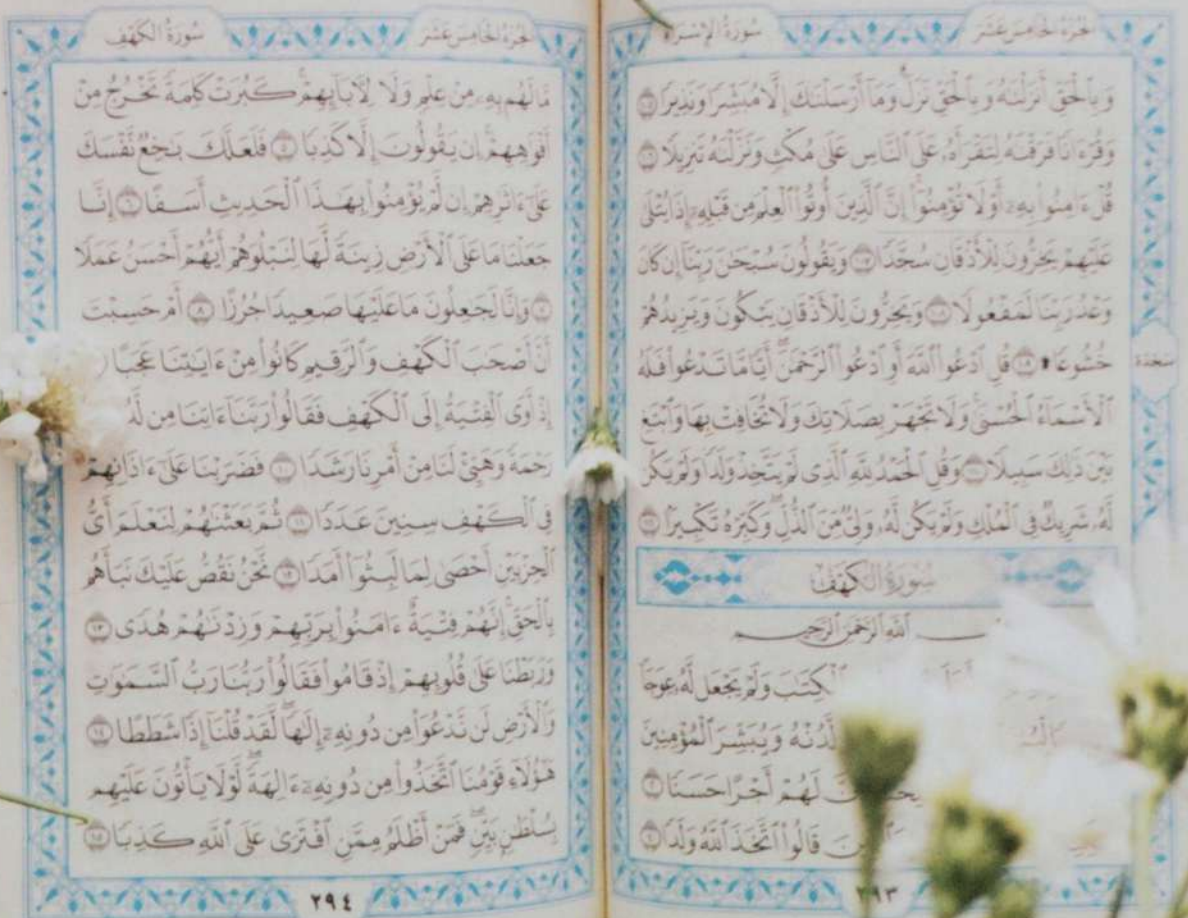 الجزء الخامس عشر
سورة الإسراء
وَبِٱلْحَقِّ أَنزَلْنَٰهُ وَبِٱلْحَقِّ نَزَلَ وَمَآ أَرْسَلْنَٰكَ إِلَّا مُبَشِّرًا وَنَذِيرًا ١٠٥
وَقُرْءَانًا فَرَقْنَٰهُ لِتَقْرَأَهُۥ عَلَى ٱلنَّاسِ عَلَىٰ مُكْثٍ وَنَزَّلْنَٰهُ تَنزِيلًا ١٠٦
قُلْ ءَامِنُوا۟ بِهِۦٓ أَوْ لَا تُؤْمِنُوٓا۟ إِنَّ ٱلَّذِينَ أُوتُوا۟ ٱلْعِلْمَ مِن قَبْلِهِۦٓ إِذَا يُتْلَىٰ
عَلَيْهِمْ يَخِرُّونَ لِلْأَذْقَانِ سُجَّدًا ١٠٧ وَيَقُولُونَ سُبْحَٰنَ رَبِّنَآ إِن كَانَ
وَعْدُ رَبِّنَا لَمَفْعُولًا ١٠٨ وَيَخِرُّونَ لِلْأَذْقَانِ يَبْكُونَ وَيَزِيدُهُمْ
خُشُوعًا ۩ ١٠٩ قُلِ ٱدْعُوا۟ ٱللَّهَ أَوِ ٱدْعُوا۟ ٱلرَّحْمَٰنَ أَيًّا مَّا تَدْعُوا۟ فَلَهُ
سجدة
ٱلْأَسْمَآءُ ٱلْحُسْنَىٰ وَلَا تَجْهَرْ بِصَلَاتِكَ وَلَا تُخَافِتْ بِهَا وَٱبْتَغِ
بَيْنَ ذَٰلِكَ سَبِيلًا ١١٠ وَقُلِ ٱلْحَمْدُ لِلَّهِ ٱلَّذِى لَمْ يَتَّخِذْ وَلَدًا وَلَمْ يَكُن
لَّهُۥ شَرِيكٌ فِى ٱلْمُلْكِ وَلَمْ يَكُن لَّهُۥ وَلِىٌّ مِّنَ ٱلذُّلِّ وَكَبِّرْهُ تَكْبِيرًا ١١١
سُورَةُ الكَهْفِ
ٱللَّهِ ٱلرَّحْمَٰنِ ٱلرَّحِيمِ
ٱلْكِتَٰبَ وَلَمْ يَجْعَل لَّهُۥ عِوَجَا
لَّدُنْهُ وَيُبَشِّرَ ٱلْمُؤْمِنِينَ
لَهُمْ أَجْرًا حَسَنًا ٢
قَالُوا۟ ٱتَّخَذَ ٱللَّهُ وَلَدًا ٤
الجزء الخامس عشر
سورة الكهف
مَّا لَهُم بِهِۦ مِنْ عِلْمٍ وَلَا لِءَابَآئِهِمْ كَبُرَتْ كَلِمَةً تَخْرُجُ مِنْ
أَفْوَٰهِهِمْ إِن يَقُولُونَ إِلَّا كَذِبًا ٥ فَلَعَلَّكَ بَٰخِعٌ نَّفْسَكَ
عَلَىٰٓ ءَاثَٰرِهِمْ إِن لَّمْ يُؤْمِنُوا۟ بِهَٰذَا ٱلْحَدِيثِ أَسَفًا ٦ إِنَّا
جَعَلْنَا مَا عَلَى ٱلْأَرْضِ زِينَةً لَّهَا لِنَبْلُوَهُمْ أَيُّهُمْ أَحْسَنُ عَمَلًا
٧ وَإِنَّا لَجَٰعِلُونَ مَا عَلَيْهَا صَعِيدًا جُرُزًا ٨ أَمْ حَسِبْتَ
أَنَّ أَصْحَٰبَ ٱلْكَهْفِ وَٱلرَّقِيمِ كَانُوا۟ مِنْ ءَايَٰتِنَا عَجَبًا
إِذْ أَوَى ٱلْفِتْيَةُ إِلَى ٱلْكَهْفِ فَقَالُوا۟ رَبَّنَآ ءَاتِنَا مِن
رَحْمَةً وَهَيِّئْ لَنَا مِنْ أَمْرِنَا رَشَدًا ١٠ فَضَرَبْنَا عَلَىٰٓ ءَاذَانِهِمْ
فِى ٱلْكَهْفِ سِنِينَ عَدَدًا ١١ ثُمَّ بَعَثْنَٰهُمْ لِنَعْلَمَ أَىُّ
ٱلْحِزْبَيْنِ أَحْصَىٰ لِمَا لَبِثُوٓا۟ أَمَدًا ١٢ نَّحْنُ نَقُصُّ عَلَيْكَ نَبَأَهُم
بِٱلْحَقِّ إِنَّهُمْ فِتْيَةٌ ءَامَنُوا۟ بِرَبِّهِمْ وَزِدْنَٰهُمْ هُدًى ١٣
وَرَبَطْنَا عَلَىٰ قُلُوبِهِمْ إِذْ قَامُوا۟ فَقَالُوا۟ رَبُّنَا رَبُّ ٱلسَّمَٰوَٰتِ
وَٱلْأَرْضِ لَن نَّدْعُوَا۟ مِن دُونِهِۦٓ إِلَٰهًا لَّقَدْ قُلْنَآ إِذًا شَطَطًا ١٤
هَٰٓؤُلَآءِ قَوْمُنَا ٱتَّخَذُوا۟ مِن دُونِهِۦٓ ءَالِهَةً لَّوْلَا يَأْتُونَ عَلَيْهِم
بِسُلْطَٰنٍ بَيِّنٍ فَمَنْ أَظْلَمُ مِمَّنِ ٱفْتَرَىٰ عَلَى ٱللَّهِ كَذِبًا ١٥
٢٩٤